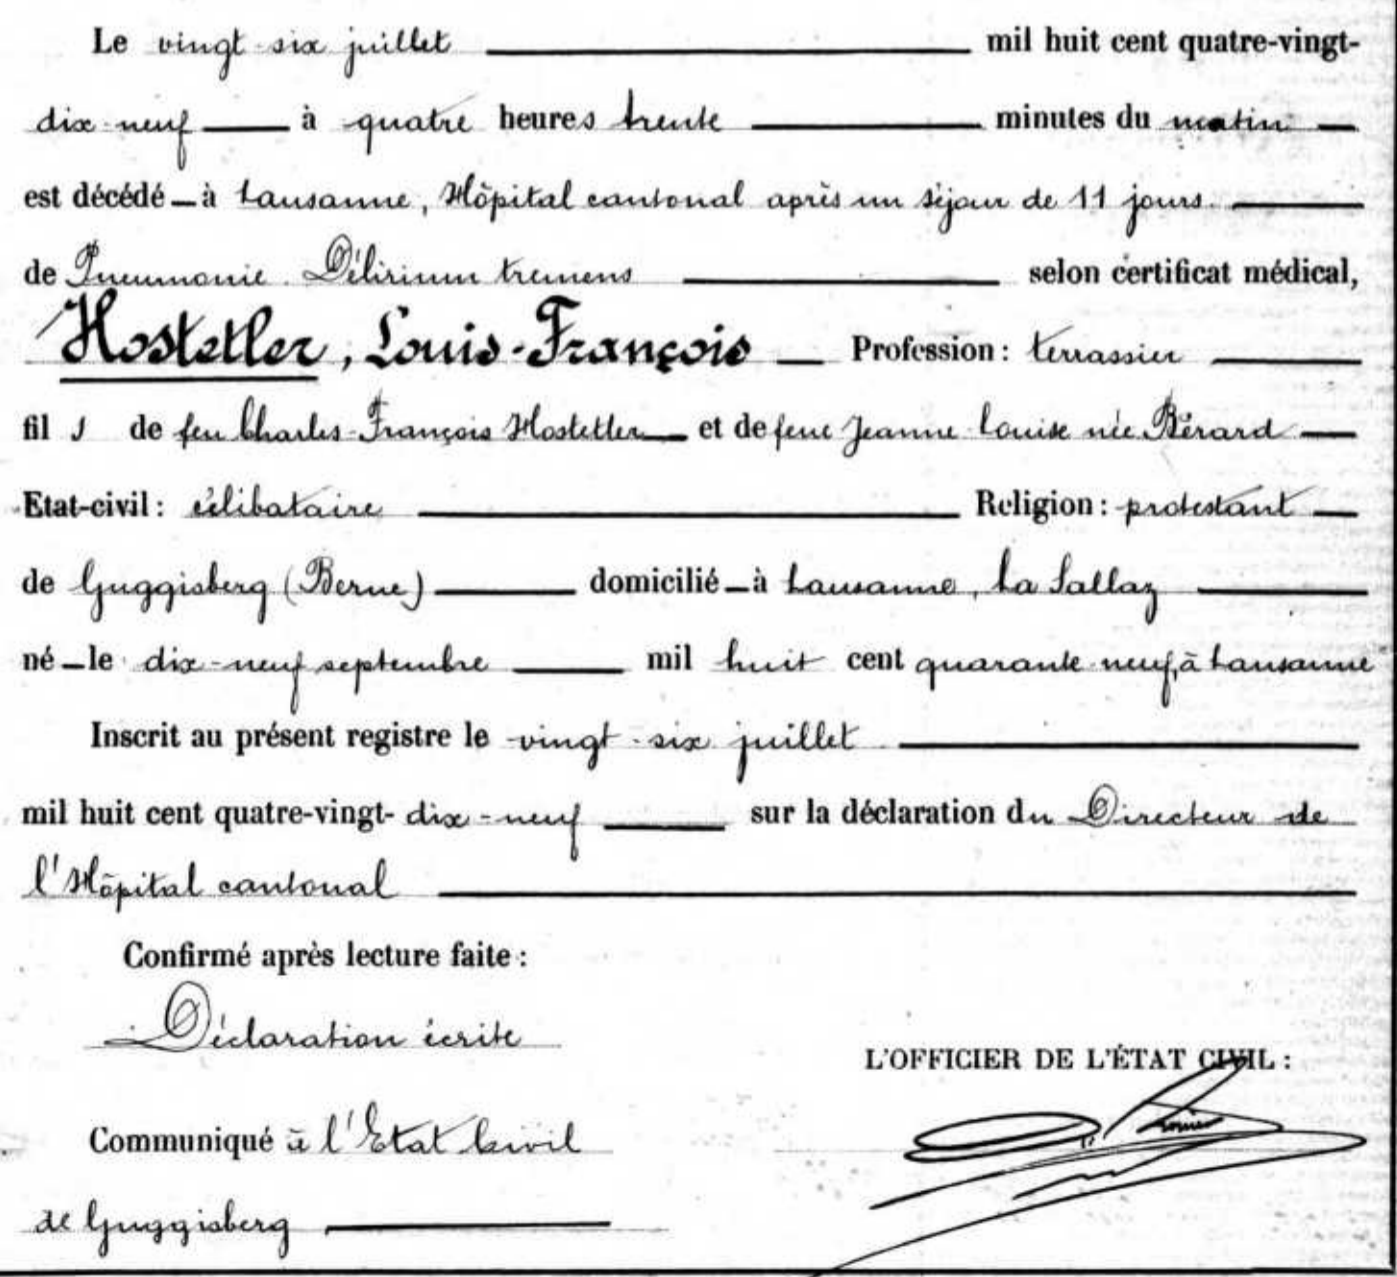 Le vingt-six juillet mil huit cent quatre-vingt-
dix-neuf à quatre heures trente minutes du matin
est décédé à Lausanne, Hôpital cantonal après un séjour de 11 jours
de Pneumonie. Délirium tremens selon certificat médical,
Hostettler, Louis-François Profession: terrassier
fils de feu Charles-François Hostettler et de feue Jeanne-Louise née Bérard
Etat-civil: célibataire Religion: protestant
de Guggisberg (Berne) domicilié à Lausanne, La Sallaz
né le dix-neuf septembre mil huit cent quarante-neuf, à Lausanne
Inscrit au présent registre le vingt-six juillet
mil huit cent quatre-vingt-dix-neuf sur la déclaration du Directeur de
l'Hôpital cantonal
Confirmé après lecture faite:
Déclaration écrite
L'OFFICIER DE L'ÉTAT CIVIL:
Communiqué à l'Etat Civil
de Guggisberg